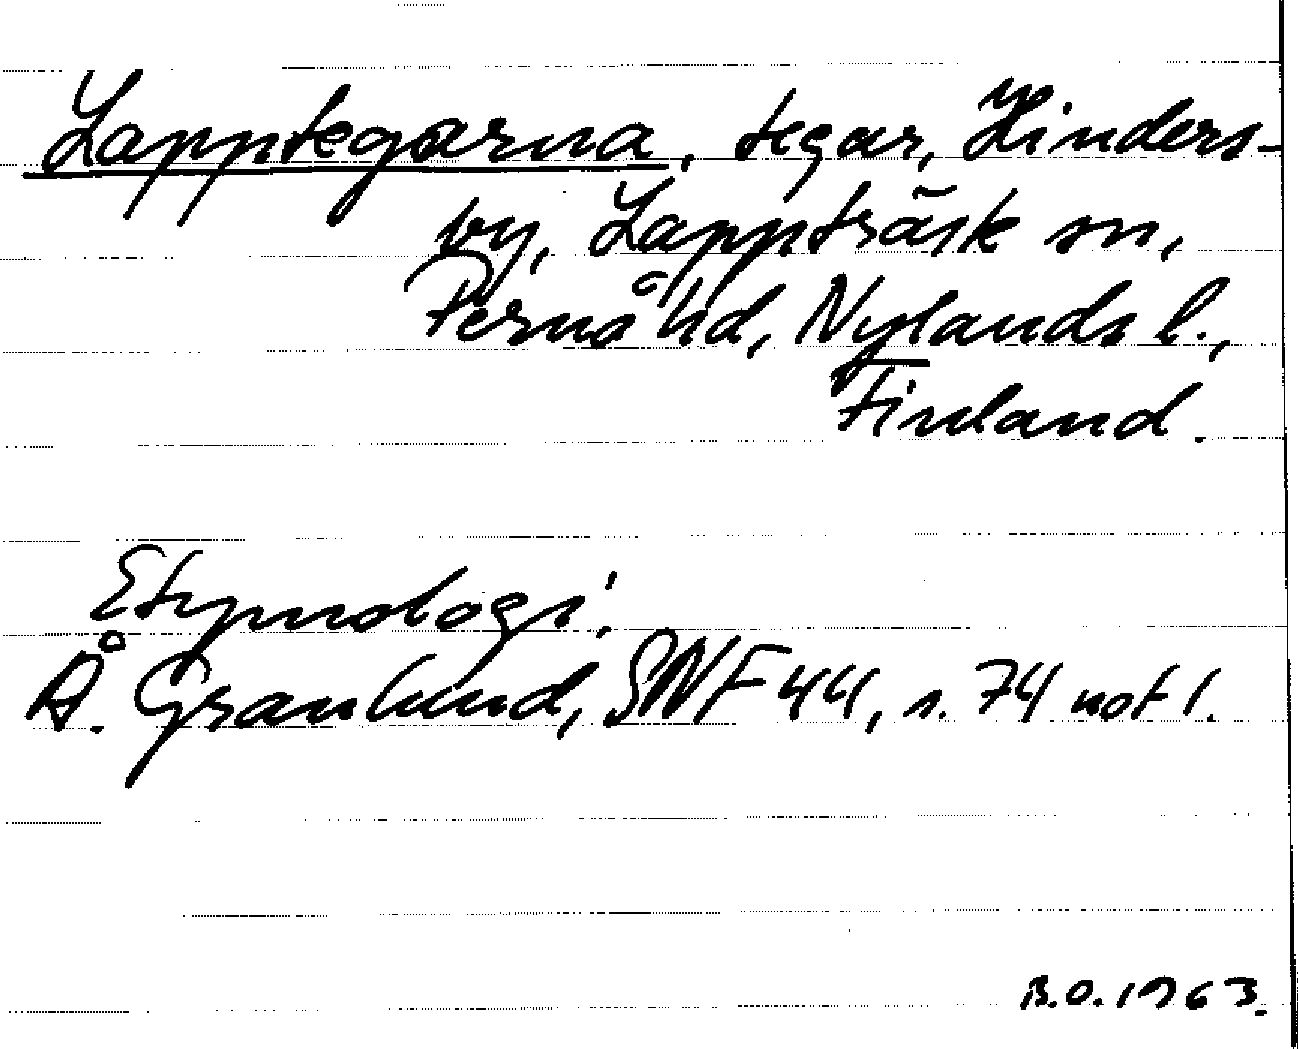 Lapptegarna, tegar, Hinders-
by, Lappträsk sn,
Pernå hd, Nylands l.,
Finland.
Etymologi:
Å. Granlund, SNF 44, s. 74 not 1.
B.O. 1963.